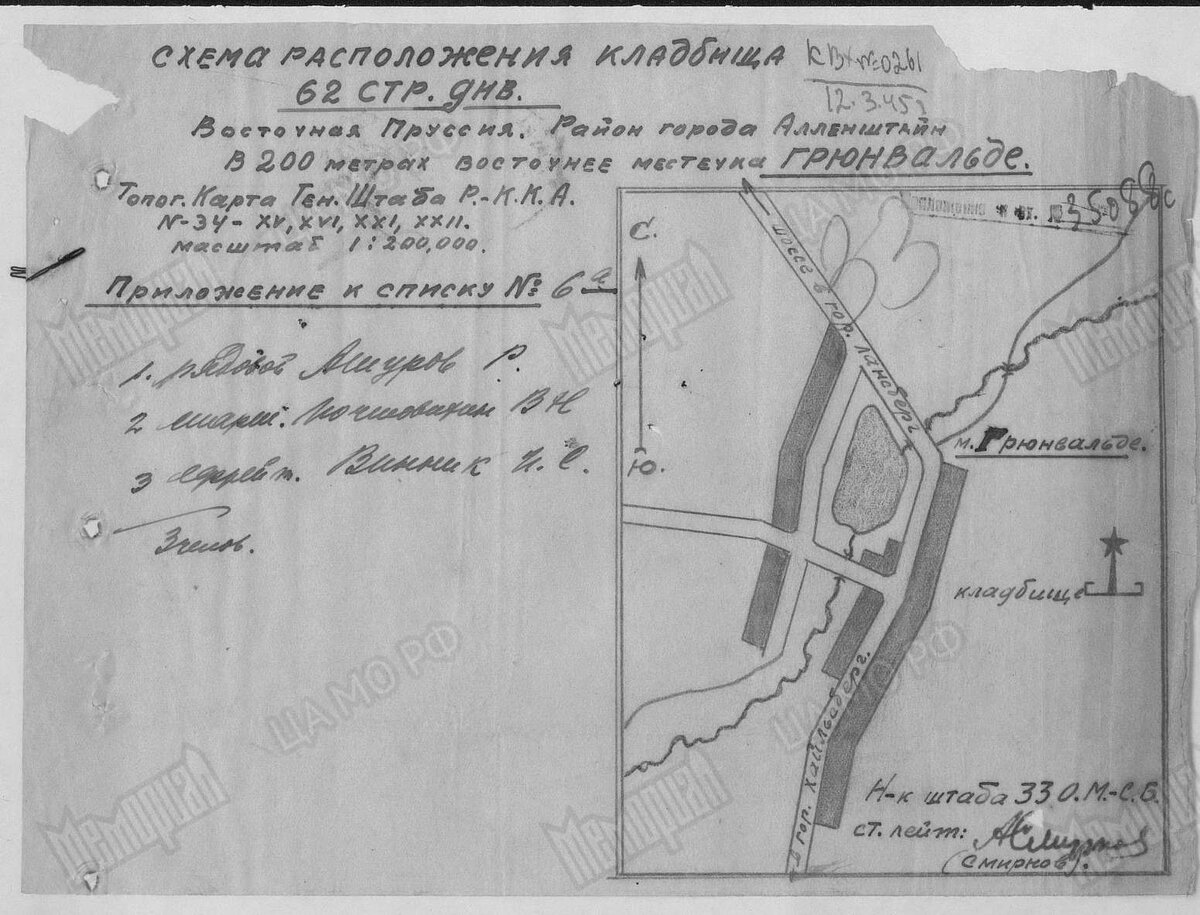 СХЕМА РАСПОЛОЖЕНИЯ КЛАДБИЩА
62 СТР. ДИВ.
КВХ №0261
12.3.45г
Восточная Пруссия. Район города Алленштайн
В 200 метрах восточнее местечка ГРЮНВАЛЬДЕ.
Топог. Карта Ген. Штаба Р.-К.К.А.
N-34- XV, XVI, XXI, XXII.
масштаб 1:200,000.
Приложение к списку № 6а
1. рядовой Ашуров Р.
2 В Н
3 Ефрейт. Винник И. С.
3 челов.
вх. 35088с
83
С.
Ю.
шоссе в гор. Лансберг
м. Грюнвальде.
кладбище
в гор. Хайльсберг.
Н-к штаба 33 О.М.-С.Б.
ст. лейт: Смирнов
(Смирнов).
Мемориал
ЦАМО РФ